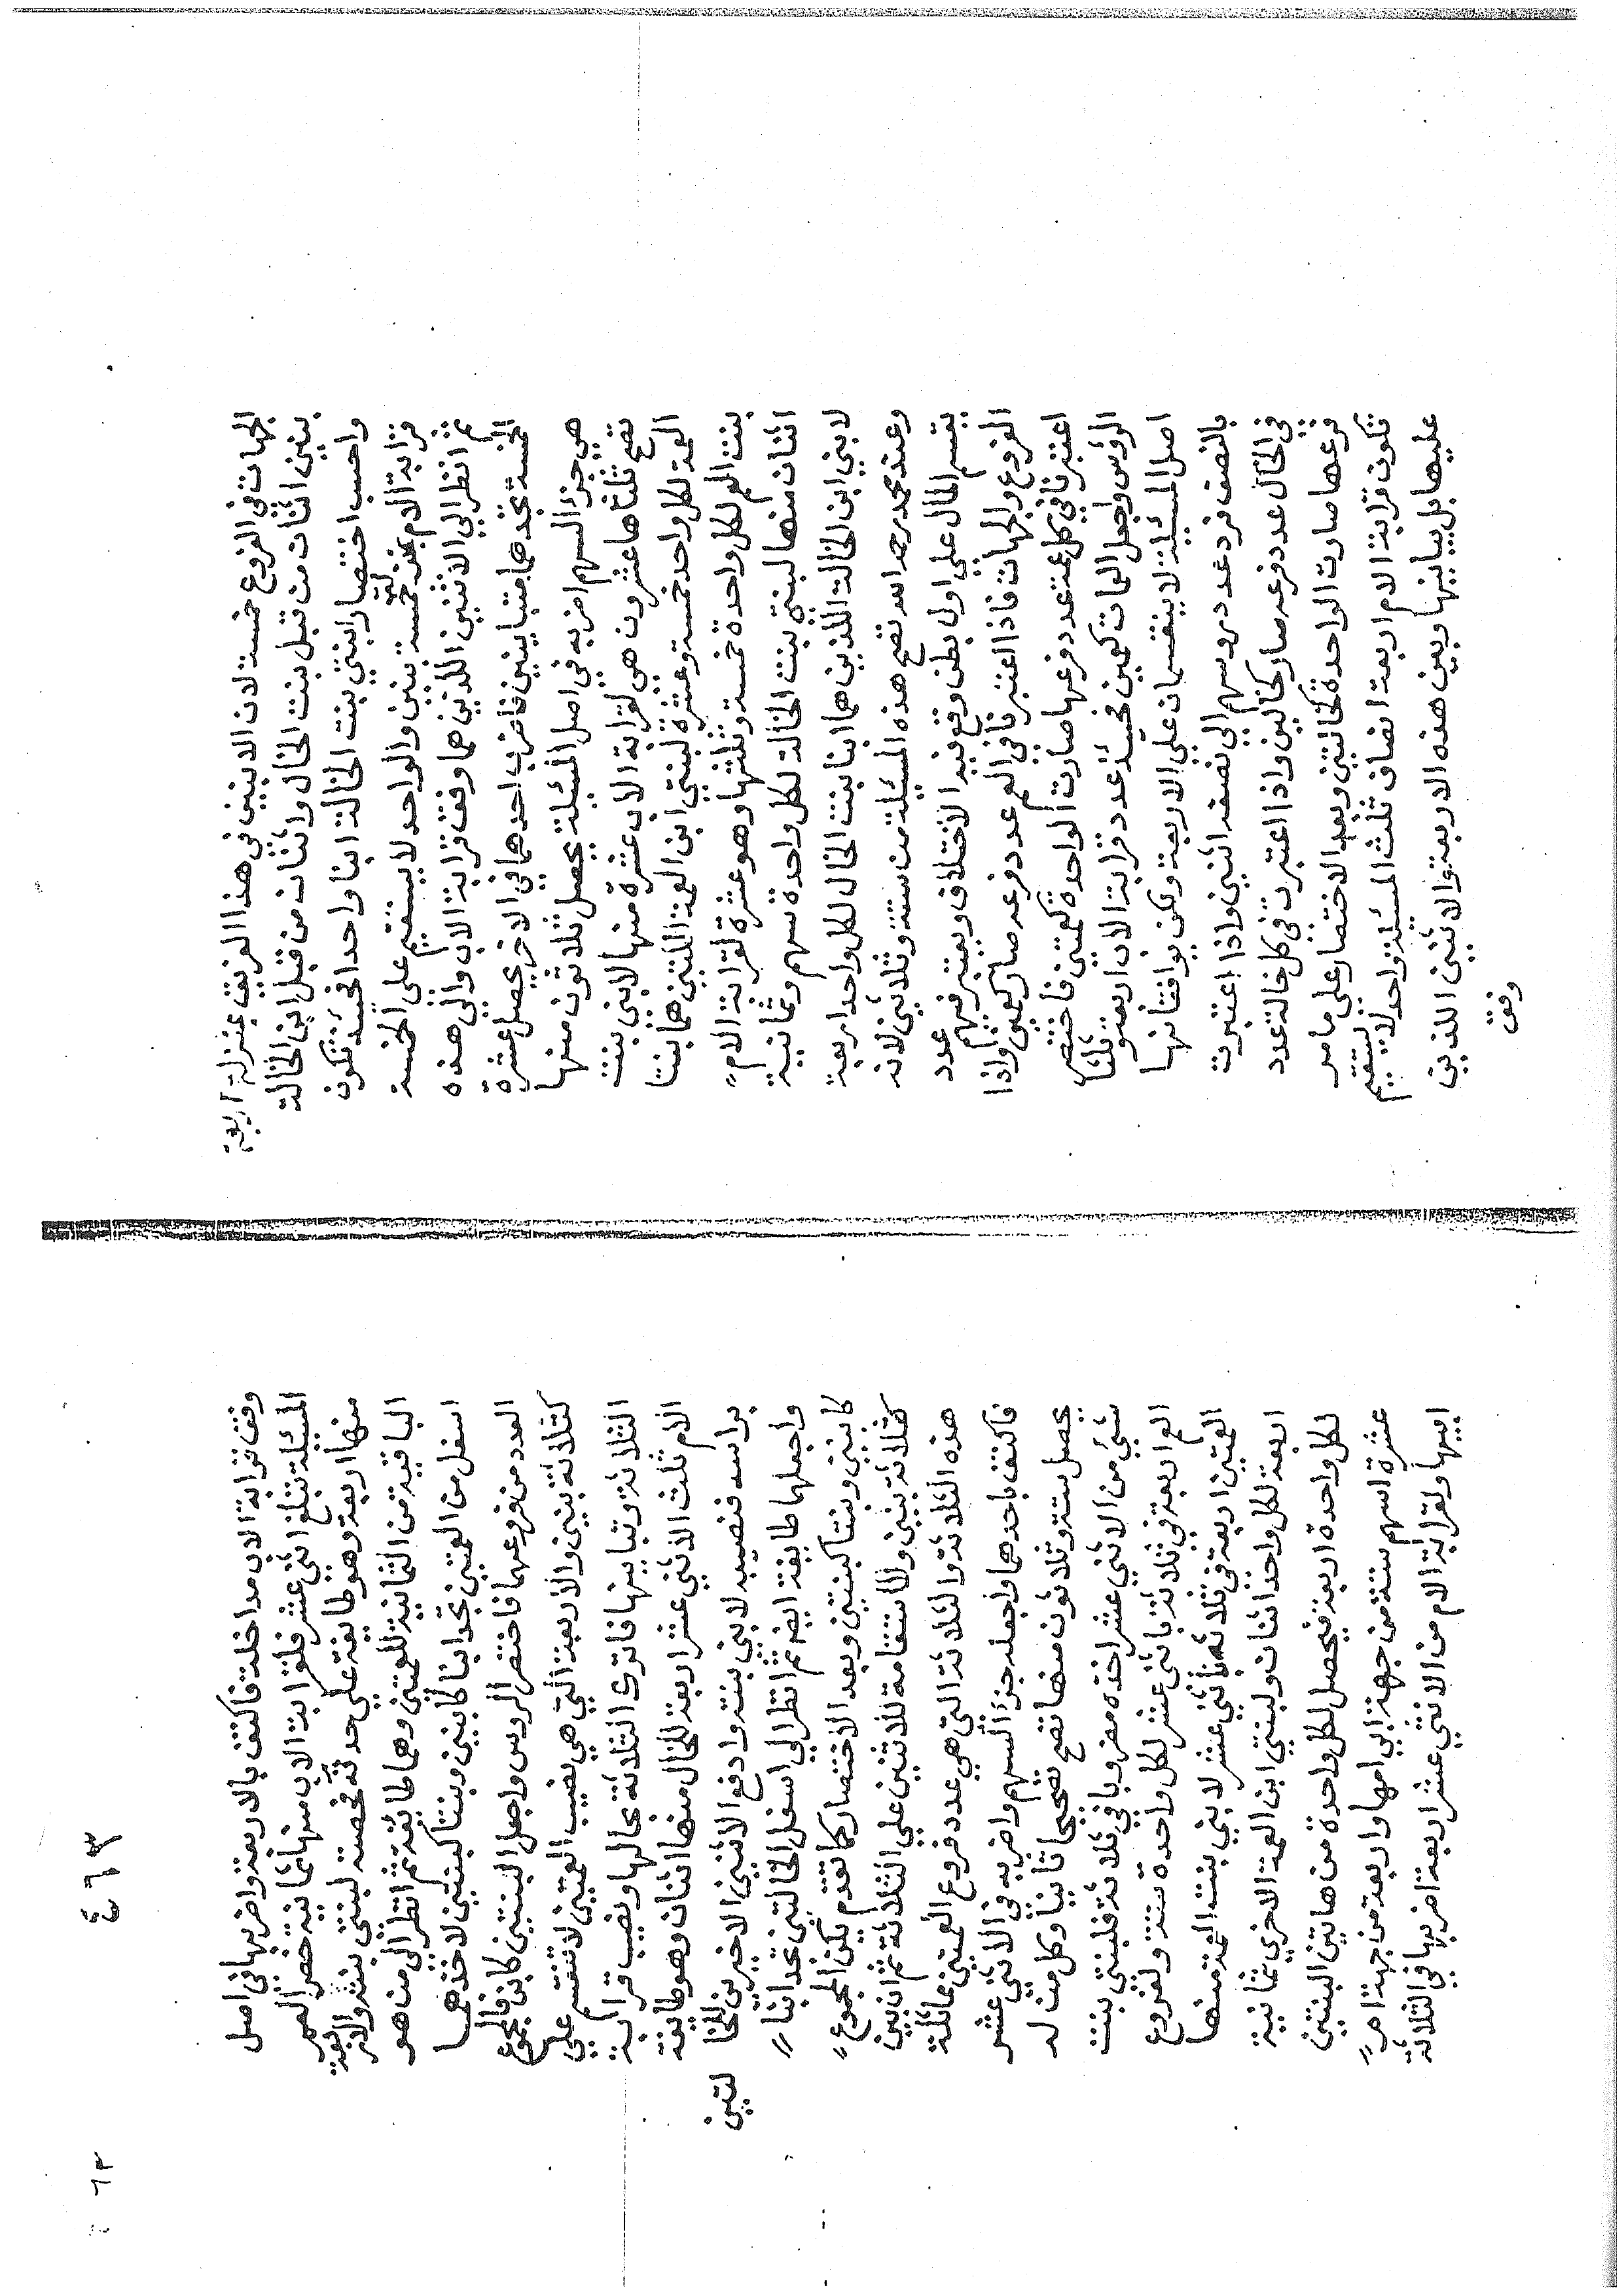 الجهات في الفروع خمسة لان الابنين في هذا الفريق بمنزلة اربعة
بنين اثنان من قبل بنت الخال واثنان من قبل ابن الخالة
واحسب اختصار ابنتي بنت الخالة ابنا واحدا فحينئذ تكون
قرابة الام خمسة بنين والواحد لا يستقيم على الخمسة
ثم انظر الي الاثنين اللذين هما وفق قرابة الاب والى هذه
الخمسة تجدهما متباينين فاضرب احدهما في الاخر يحصل عشرة
هي جزء السهم اضربه في اصل المسئلة يحصل ثلاثون منها
تصح ثلثاها عشرون هي لقرابة الاب عشرة منها لابني بنت
العمة لكل واحد خمسة وعشرة لبنتي ابن العمة اللتين هما بنتا
بنت العم لكل واحدة خمسة وثلثها وهو عشرة لقرابة الام
اثنان منها لبنتي بنت الخالة لكل واحدة سهم وثمانية
لابني ابن الخالة اللذين هما ابنا بنت الخال لكل واحد اربعة
وعند محمد رحمه الله تصح هذه المسئلة من ستة وثلاثين لانه
يقسم المال على اول بطن وقع فيه الاختلاف ويعتبر فيهم عدد
الفروع والجهات فاذا اعتبرنا في العم عدد فرعه صار كعمين واذا
اعتبرنا في كل عمة عدد فرعها صارت الواحدة كعمتين فاختصر
الرؤس واجعل العمات كعمين فحينئذ عدد قرابة الاب اربعة وثلثا
اصل المسئلة لا ينقسمان علي الاربعة ولكن يوافقانها
بالنصف فرد عدد روسهم الي نصفه اثنين واذا اعتبرت
في الخال عدد فرعه صار كخالين واذا اعتبرت في كل خالة عدد
فرعها صارت الواحدة كخالتين وبعد الاختصار على ما مر
تكون قرابة الام اربعة ايضا وثلث المسئلة واحد لا يستقيم
عليها بل يباينها وبين هذه الاربعة والاثنين اللذين
وفق
وفق قرابة الاب مداخلة فاكتف بالاربعة واضربها في اصل
المسئلة تبلغ اثني عشر فلقرابة الاب منها ثمانية حصة العم
منها اربعة وهو طايفة علي حدته فحصته لبنتي بنته والاربعة
الباقية من الثمانية للعمتين وهما طائفة ثم انظر الي من هو
اسفل من العمتين تجد ابنا كابنين وبنتا كبنتين لاخذهما
العدد من فروعهما فاختصر الروس واجعل البنتين كابن فالمجموع
كثلاثة بنين والاربعة التي هي نصيب العمتين لا تنقسم علي
الثلاثة وتباينها فاترك الثلاثة بحالها ونصيب قرابة
الام ثلث الاثني عشر اربعة للخال منها اثنان وهو طايفة
براسه فنصيبه لابني بنته وادفع الاثنين الاخيرين للخا
لتين
واجعلها طايفة ايضا ثم انظر الي اسفل الخالتين تجد ابنا
كابنين وبنتا كبنتين وبعد الاختصار كما تقدم يكن المجموع
كثلاثة بنين ولا استقامة للاثنين علي الثلاثة ثم ان بين
هذه الثلاثة والثلاثة التي هي عدد فروع العمتين مماثلة
فاكتف باحدهما واجعله جزء السهم واضربه في الاثني عشر
يحصل ستة وثلاثون منها تصح تصحيحا ثانيا وكل من له
شئ من الاثني عشر اخذه مضروبا في ثلاثة فلبنتي بنت
العم اربعة في ثلاثة باثني عشر لكل واحدة ستة ولفروع
العمتين اربعة في ثلاثة باثني عشر لابني بنت العمة منها
اربعة لكل واحد اثنان ولبنتي ابن العمة الاخري ثمانية
لكل واحدة اربعة فيحصل لكل واحدة من هاتين البنتين
عشرة اسهم ستة من جهة ابي امها واربعة من جهة ام
ابيها ولقرابة الام من الاثني عشر اربعة اضربها في الثلاثة
٤٦٣
٦٣